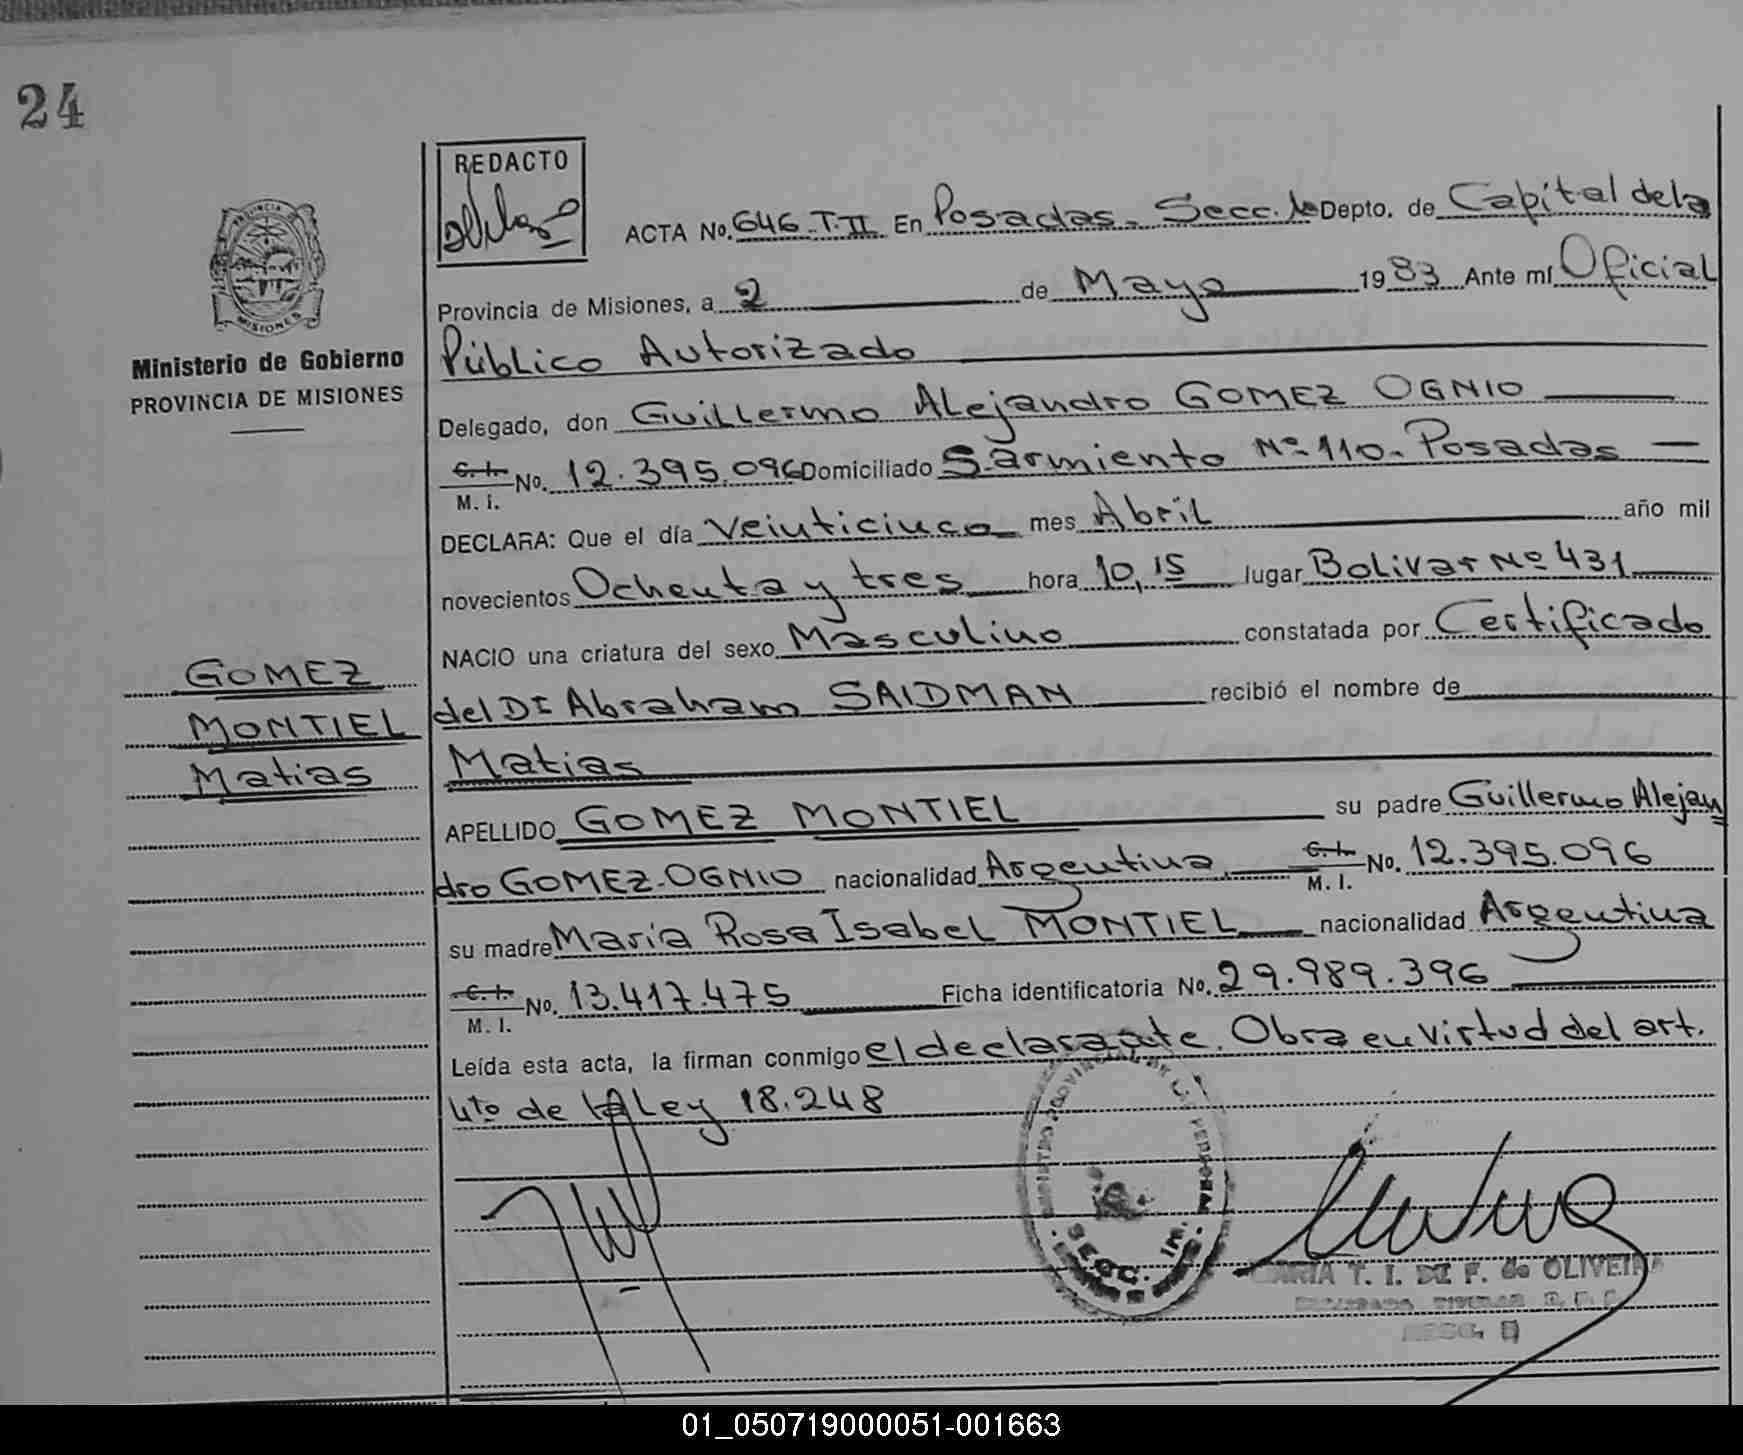 24
REDACTO
PROVINCIA
MISIONES
Ministerio de Gobierno
PROVINCIA DE MISIONES
ACTA No. 646 T. II En Posadas. Secc. 1a Depto. de Capital de la
Provincia de Misiones, a 2 de Mayo 1983 Ante mí Oficial
Público Autorizado
Delegado, don Guillermo Alejandro GOMEZ OGNIO
C. I. M. I. No. 12.395.096 Domiciliado Sarmiento Nº 110. Posadas
DECLARA: Que el día Veinticinco mes Abril año mil
novecientos Ochenta y tres hora 10,15 lugar Bolivar Nº 431
NACIO una criatura del sexo Masculino constatada por Certificado
del Dr Abraham SAIDMAN recibió el nombre de
Matias
APELLIDO GOMEZ MONTIEL su padre Guillermo Alejan
dro GOMEZ-OGNIO nacionalidad Argentina C. I. M. I. No. 12.395.096
su madre María Rosa Isabel MONTIEL nacionalidad Argentina
C. I. M. I. No. 13.417.475 Ficha identificatoria No. 29.989.396
Leída esta acta, la firman conmigo el declarante. Obra en virtud del art.
4to de la Ley 18.248
GOMEZ
MONTIEL
Matias
SECC.
MARIA T. I. DE F. de OLIVEIRA
01_050719000051-001663